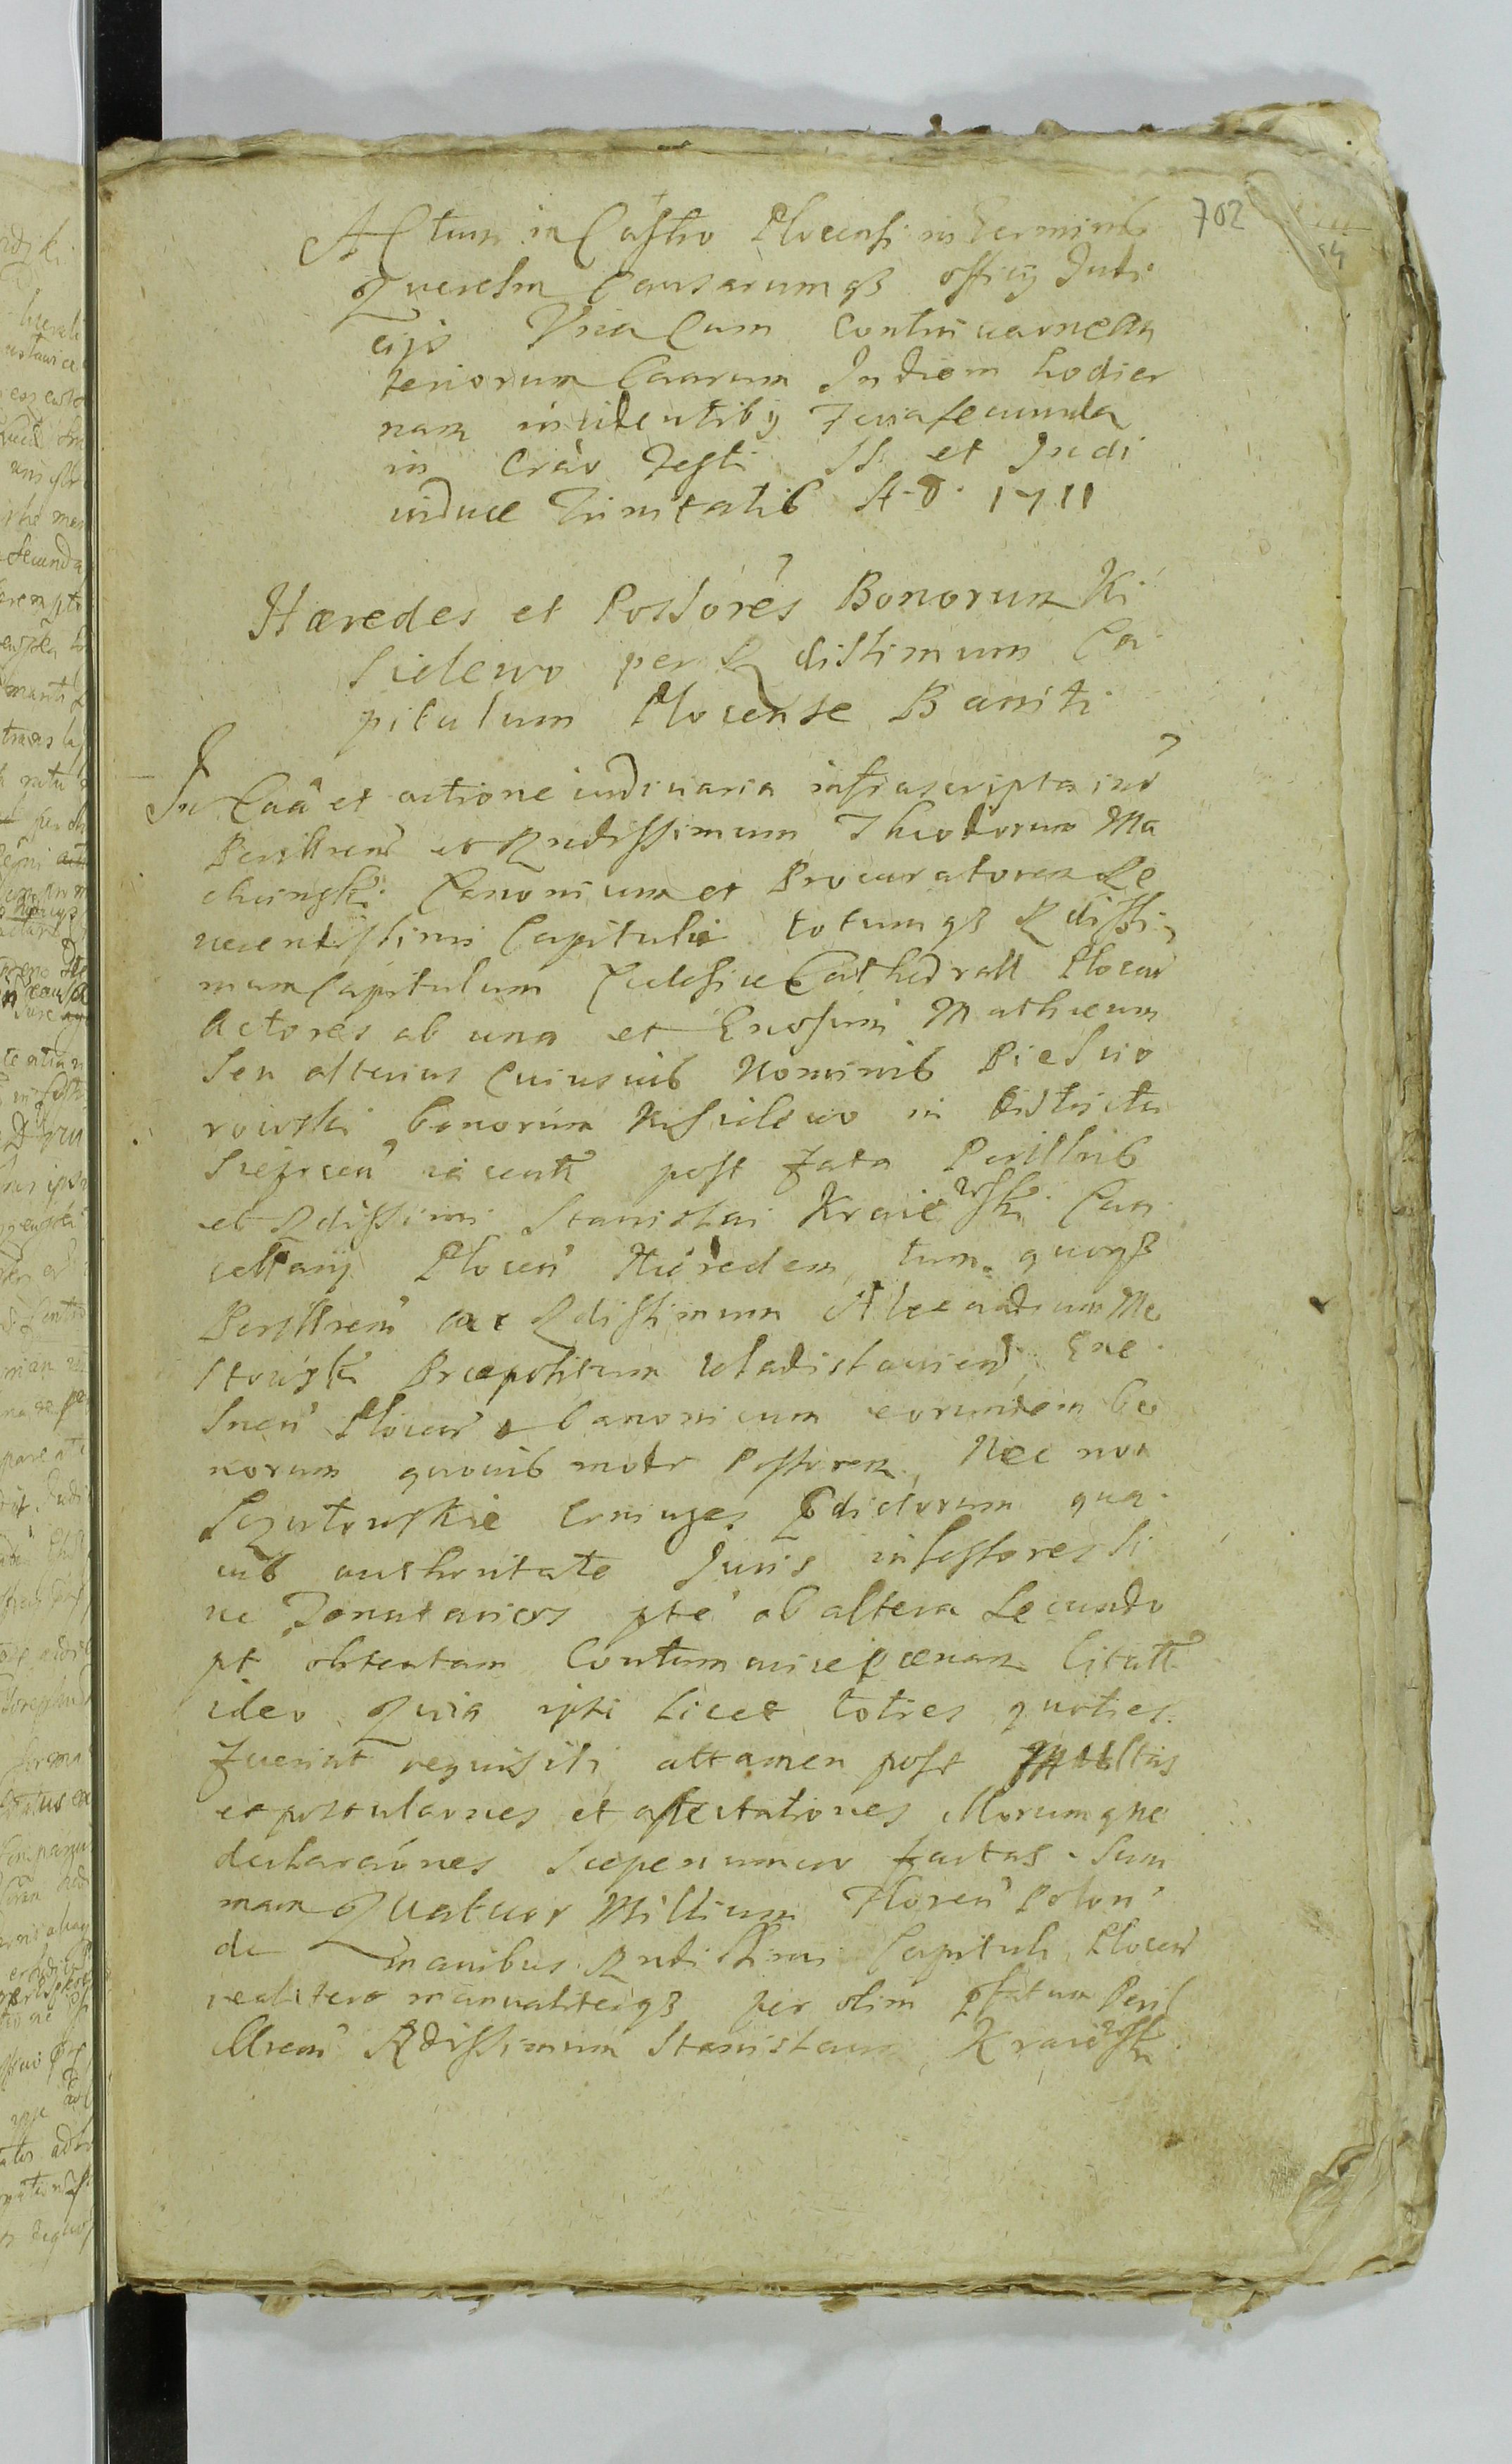 702
14
Actum in Castro Plocensi in Terminis
Querelar Causarumqz officij Judi
cijs Una Cum Continuaone An
teriorum Caarum In diem hodier
nam incidentibz Feria secunda
in Crao Festi SS. et Indi
viduae Trinitatis A. D. 1711
Haeredes et Possores Bonorum Ki
sielewo per Rdissimum Ca
pitulum Plocense Banniti
In Caa et actione iudiciaria infrascripta int
Perillrem et Rndissimum Theodorum Ma
chinski Canonicum et Procuratorem Re
verendissimi Capituli totumqz Rdissi
mum Capitulum Ecclesiae Cathedrall Plocen
Actores ab una et Gnosum Mathaeum
Seu alterius Cuiusvis Nominis Piesno
rowski bonorum Kisielewo in Districtu
Sieprcen iacentt post Fata Perillris
et Rdissimi Stanislai Kraiewski Can
cellarij Plocen Haeredem, tum quoqz
Perillrem ac Rdissimum Alexandrum Me
stowski Praepositum Wladislavien, Gne
snen Plocen Canonicum eorundem bo
norum quovis modo Possorem, Nec non
Szutowskie Coniuges Pdictorum qua
vis authoritate Juris insessores si
ve Donatarios pte ab altera Secundo
pt obtentam Contumaciae paenam Citatt
ideo Quia ipsi licet toties quoties
Fuerint requisiti attamen post Multas
expostulaones et affectationes Morumque
declaraones saepenumero factas Sum
mam Quatuor Millium Floren Polon
de manibus Rndissimi Capituli Plocen
realitero manualiterqz per olim pfatum Peril
llrem Rdissimum Stanislaum Kraiewski